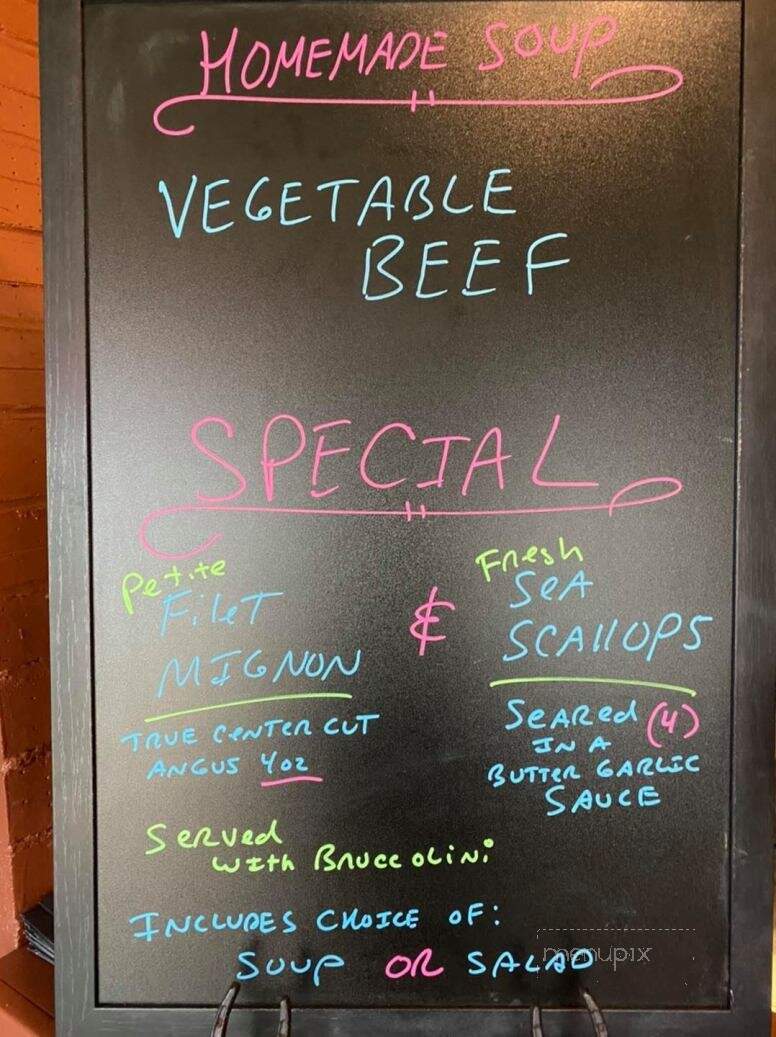 HOMEMADE SOUP
VEGETABLE
BEEF
SPECIAL
Petite
FileT
MIGNON
&
Fresh
SeA
SCAllOPS
TRUE CeNTeR CUT
ANGUS 4oz
SeARed (4)
IN A
BUTTeR GARLIC
SAUCE
Served
WITh BRUCCOLiNi
INCLUDES CHOICE OF:
SOUP OR SALAD
menupix